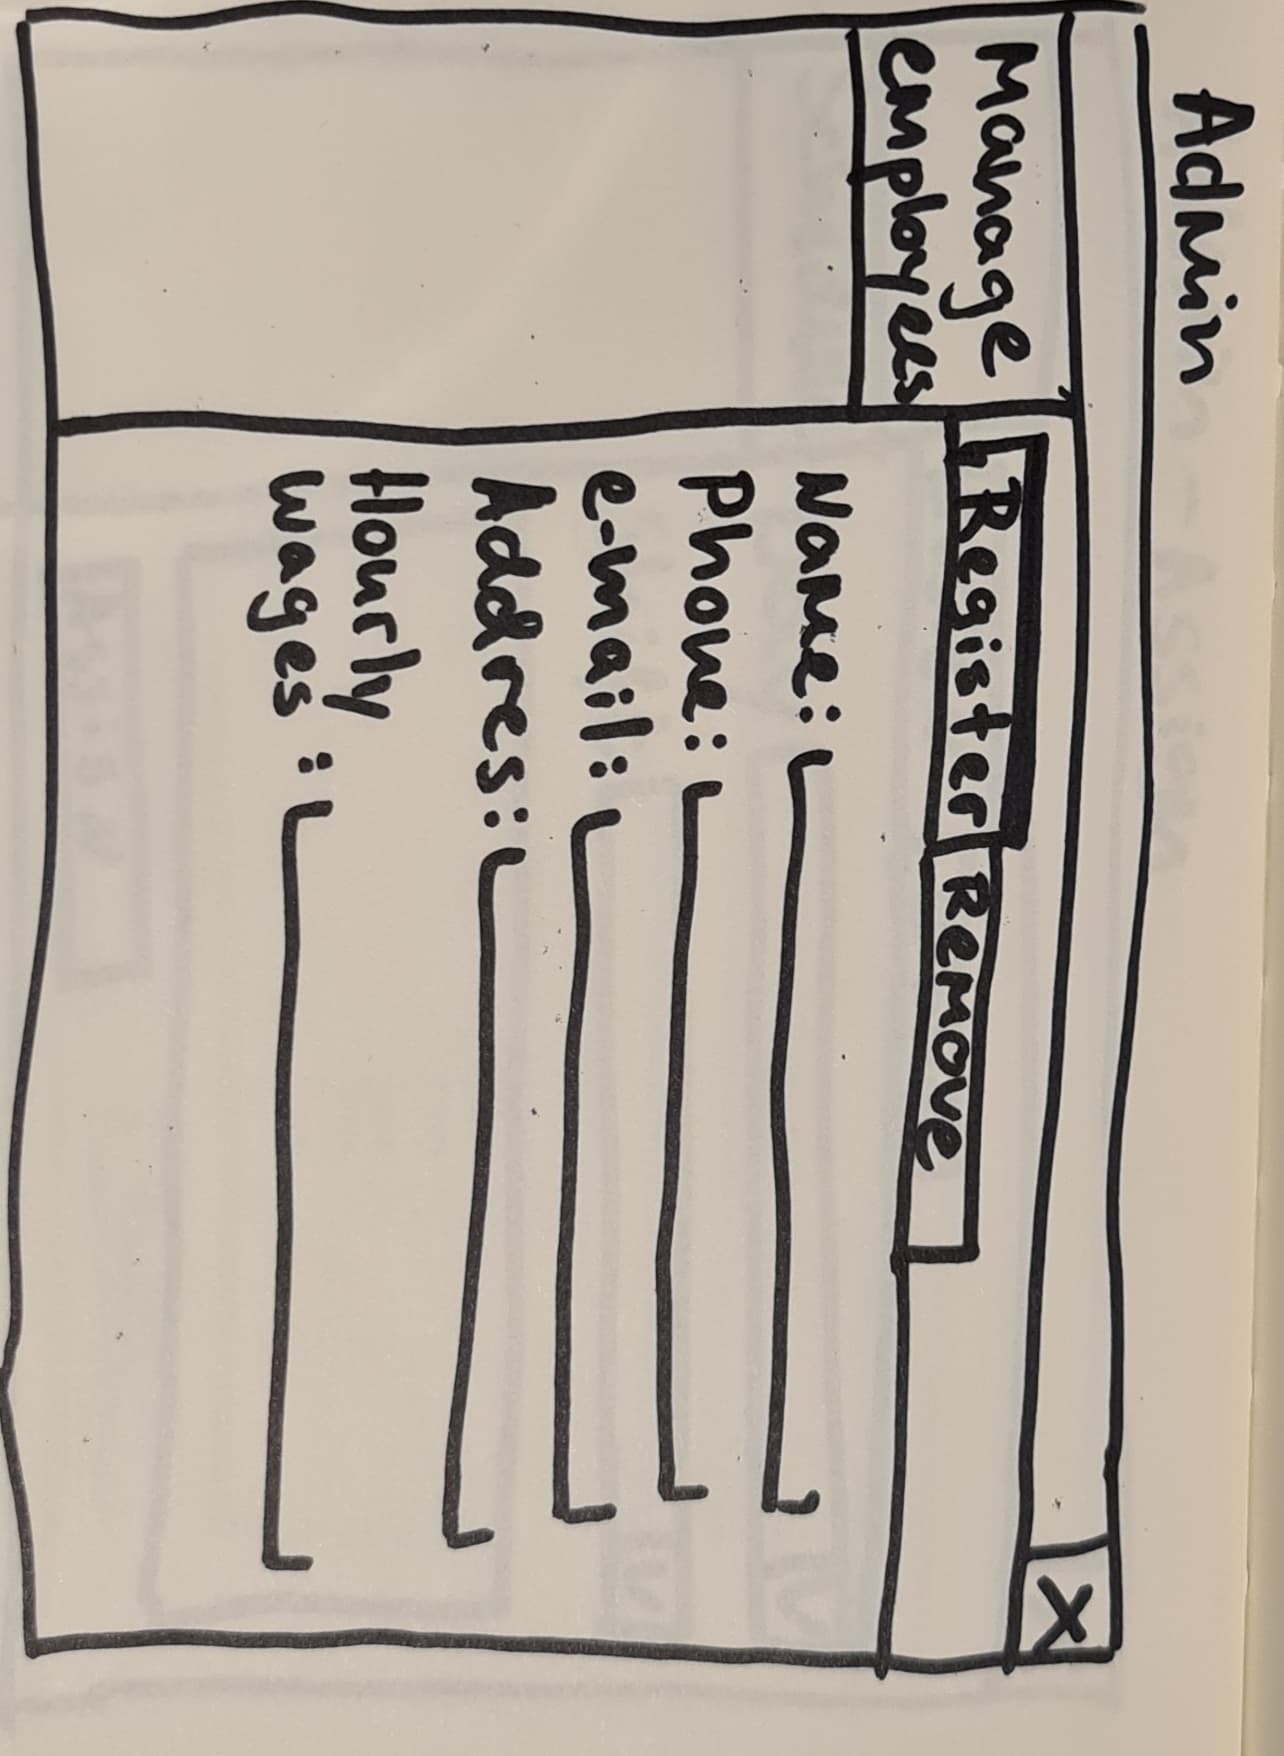 Admin
X
Manage
employees
Register
Remove
Name:
Phone:
e-mail:
Addres:
Hourly
wages :